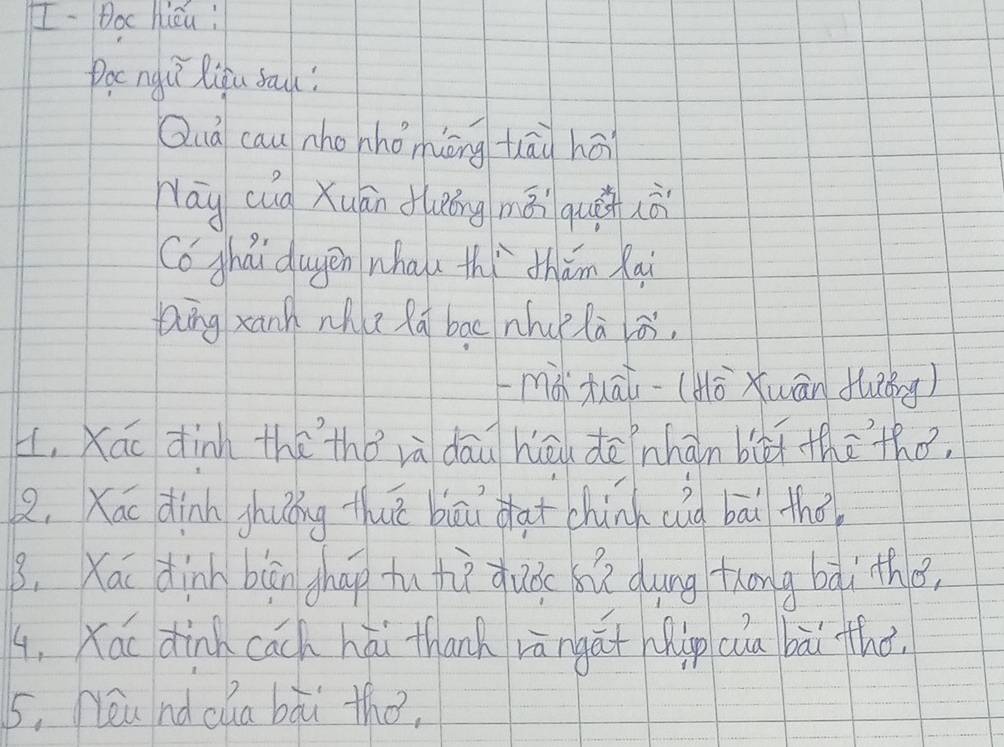 I - Đọc hiểu:
Đọc ngữ liệu sau:
Quả cau nho nhỏ miếng trầu hôi
Này của Xuân Hương mới quệt rồi
Có phải duyên nhau thì thắm lại
Đừng xanh như lá bạc như là vôi.
- Mời trầu - (Hồ Xuân Hương)
1. Xác định thể thơ và dấu hiệu để nhận biết thể thơ.
2. Xác định phương thức biểu đạt chính của bài thơ.
3. Xác định biện pháp tu từ được sử dụng trong bài thơ.
4. Xác định cách hài thanh và ngắt nhịp của bài thơ.
5. Nêu nd của bài thơ.